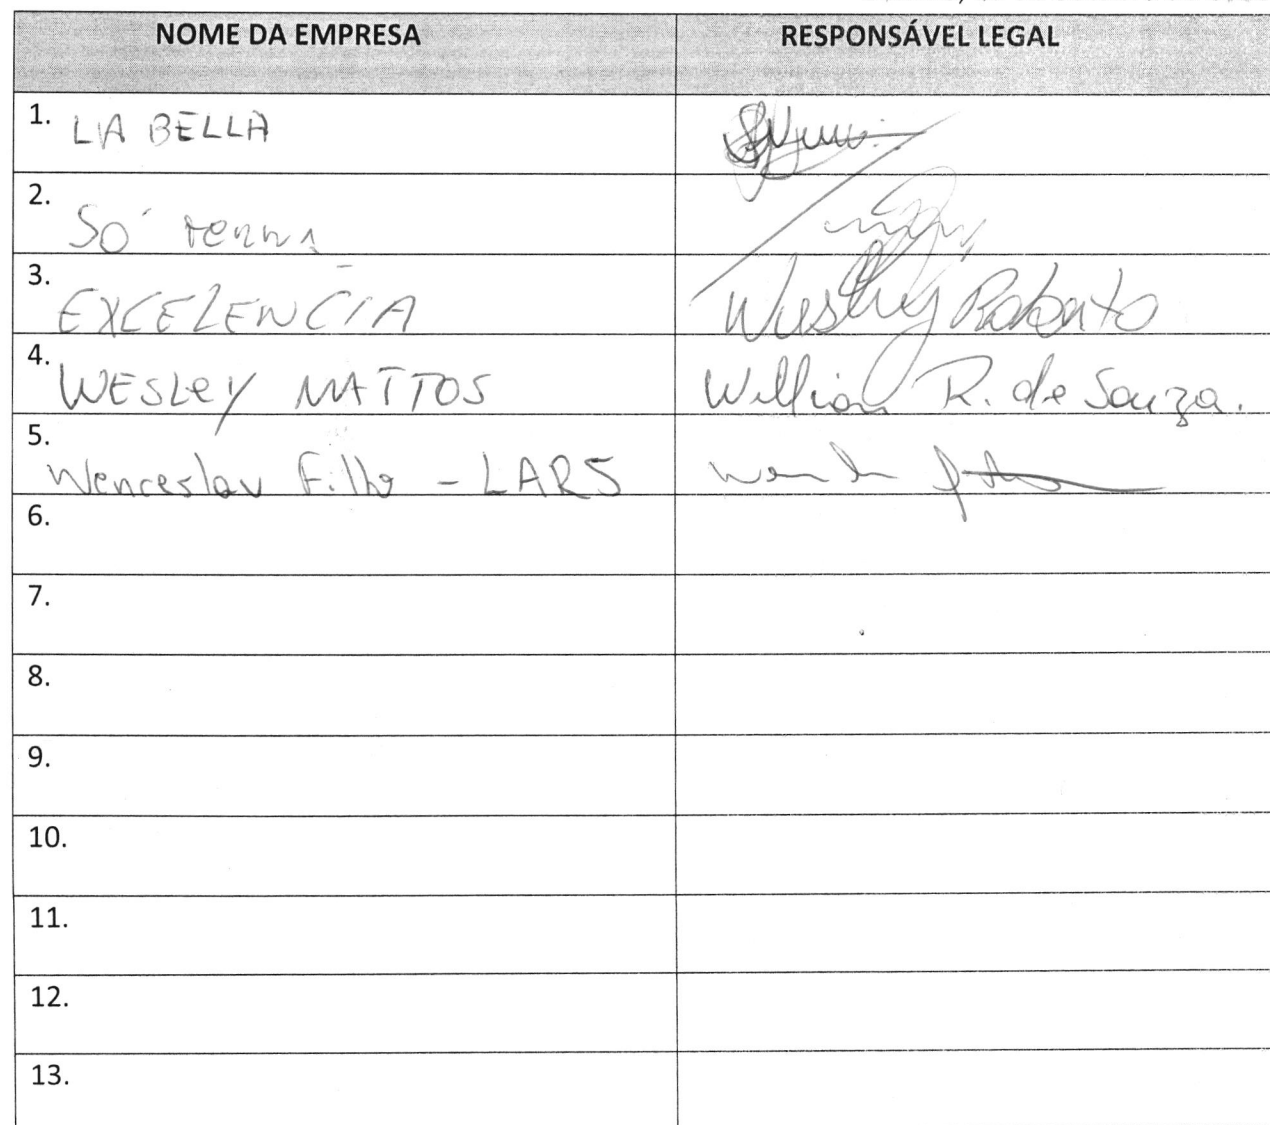 NOME DA EMPRESA RESPONSÁVEL LEGAL
1. LA BELLA
2. Só
3. EXCELENCIA Weslley Roberto
4. WESLEY MATTOS Willian R. de Souza.
5. Wenceslau Filho - LARS
6.
7.
8.
9.
10.
11.
12.
13.